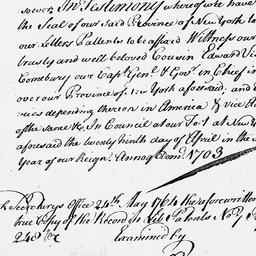 sever, In Testimony whereof we have
the Seal of our said Province of New York to
our Letters Pattents to be affixed Wittness our
trusty and well beloved Cousin Edward Vis
Cornbury our Capt. Genl. & Govr. in Cheif in
over our Province of New York aforesaid, and
ries depending thereon in America & vice
of the same &c. In Council at our fort at New Y
aforesaid the twenty Ninth day of April in the
Year of our Reign. Annoq Dom. 1703
Secretarys Office 24th May 1764 the aforewritten
true Copy of the Record in Lib. Patents No 7
248 &c
Examined by